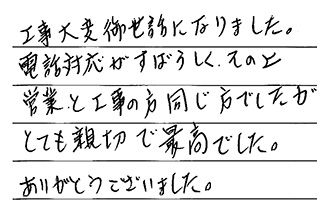 工事大変御世話になりました。
電話対応がすばらしく、その上
営業と工事の方同じ方でしたが
とても親切で最高でした。
ありがとうございました。